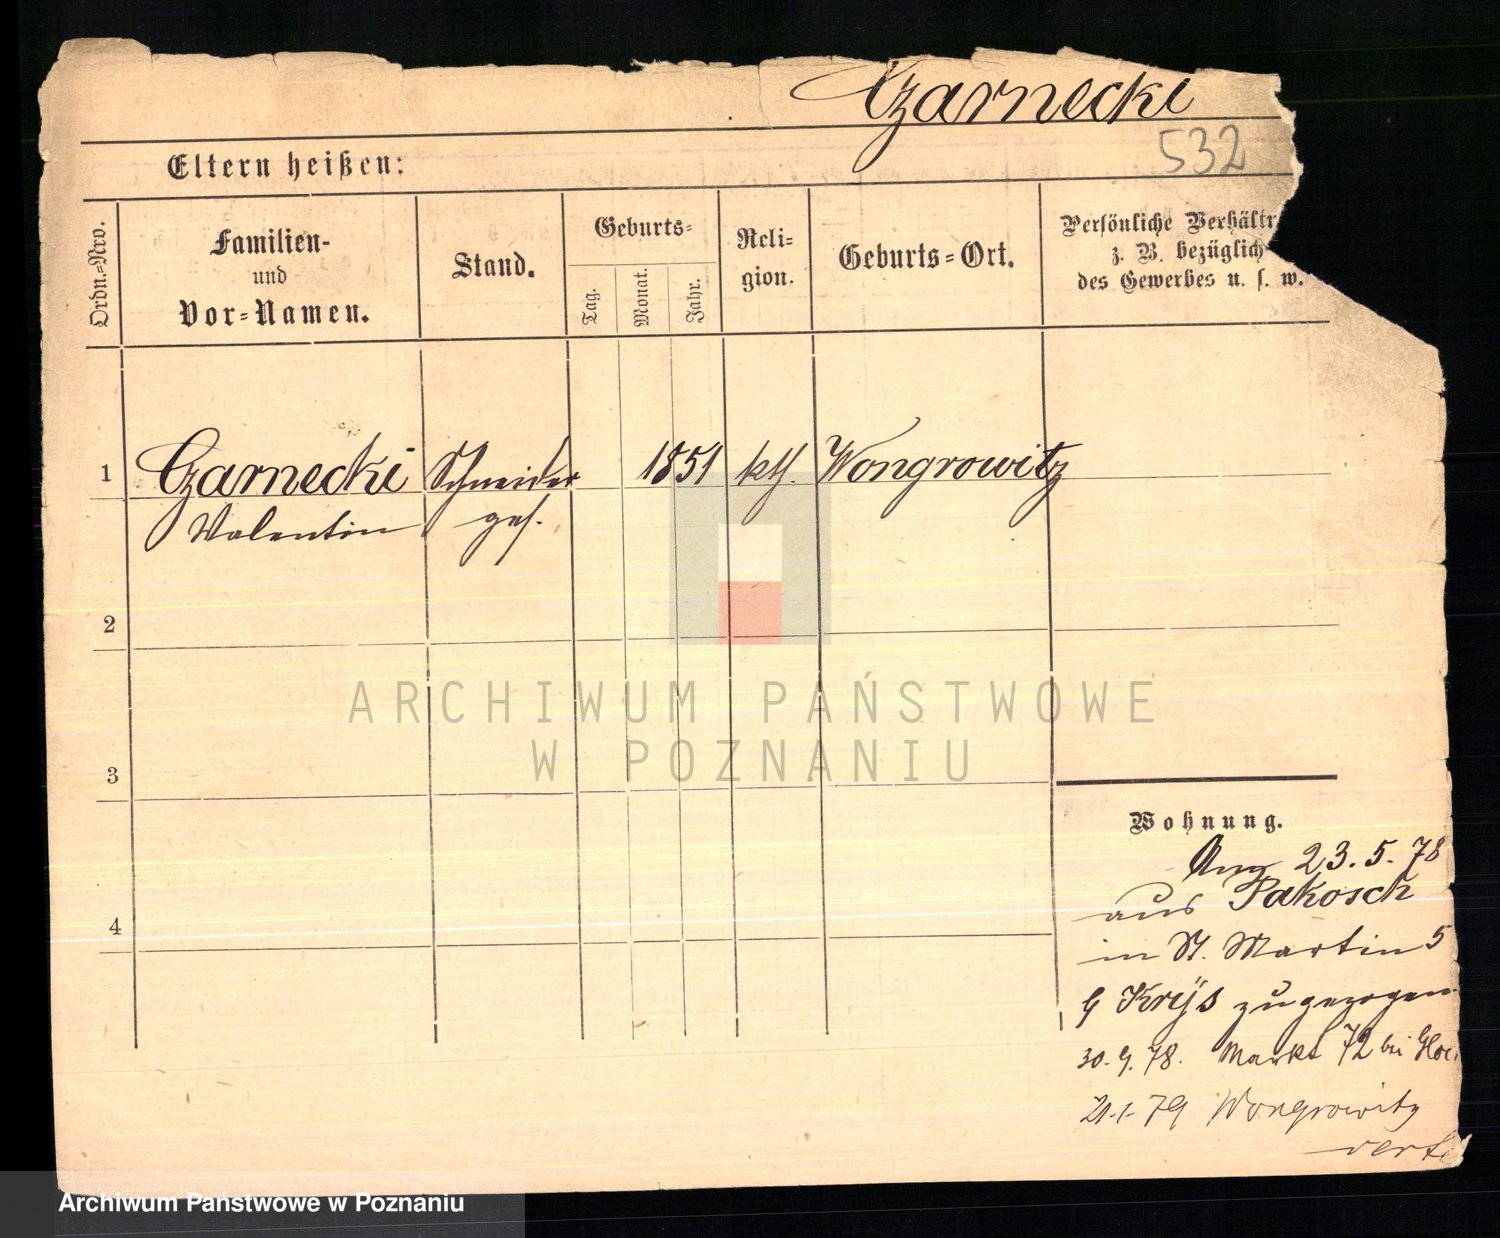 Czarnecki
532
Eltern heißen:
Ordn.=Nro.
Familien-
und
Vor=Namen.
Stand.
Geburts=
Tag.
Monat.
Jahr.
Reli=
gion.
Geburts=Ort.
Persönliche Verhältn
z. B. bezüglich
des Gewerbes u. s. w.
1
Czarnecki Schneider 1851 kth. Wongrowitz
Valentin ges.
2
ARCHIWUM PAŃSTWOWE
W POZNANIU
3
Wohnung.
Am 23.5.78
aus Pakosch
in St. Martin 5
zugezogen
4
30.9.78. Markt 72 bei
21.1.79 Wongrowitz
Archiwum Państwowe w Poznaniu